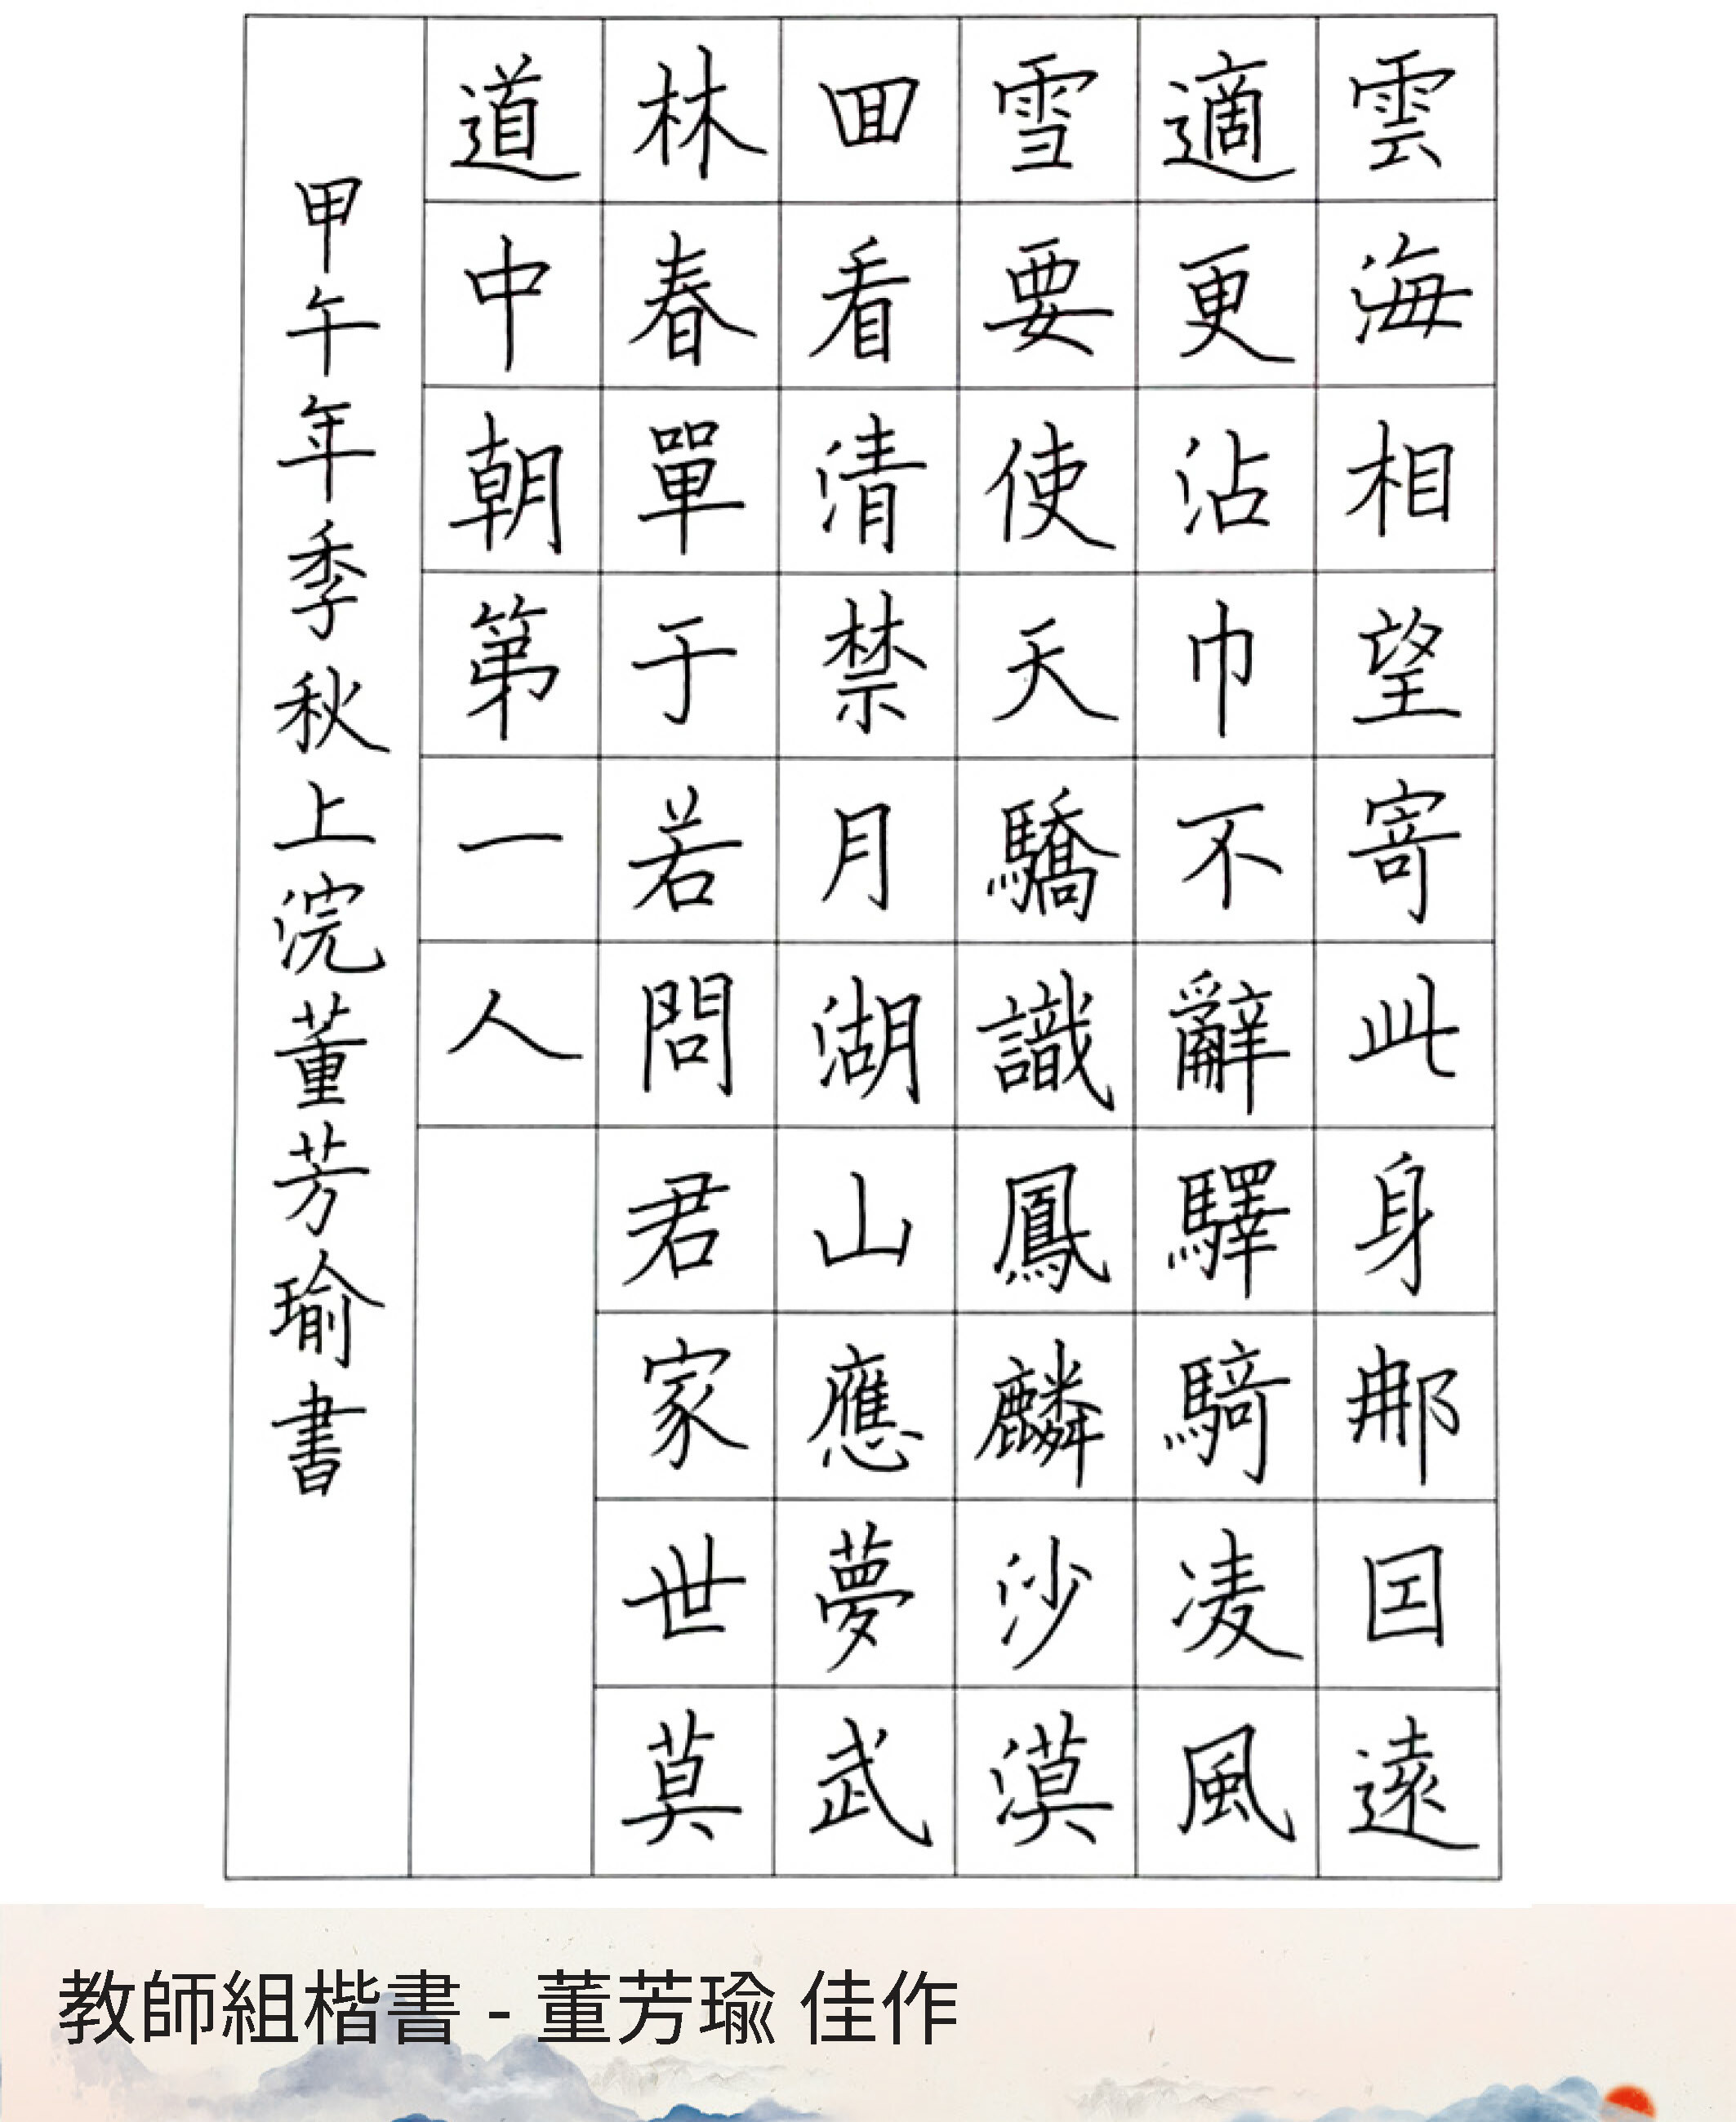 雲海相望寄此身那囯遠
適更沾巾不辭驛騎凌風
雪要使天驕識鳳麟沙漠
回看清禁月湖山應夢武
林春單于若問君家世莫
道中朝第一人
甲午年季秋上浣董芳瑜書
教師組楷書 - 董芳瑜 佳作